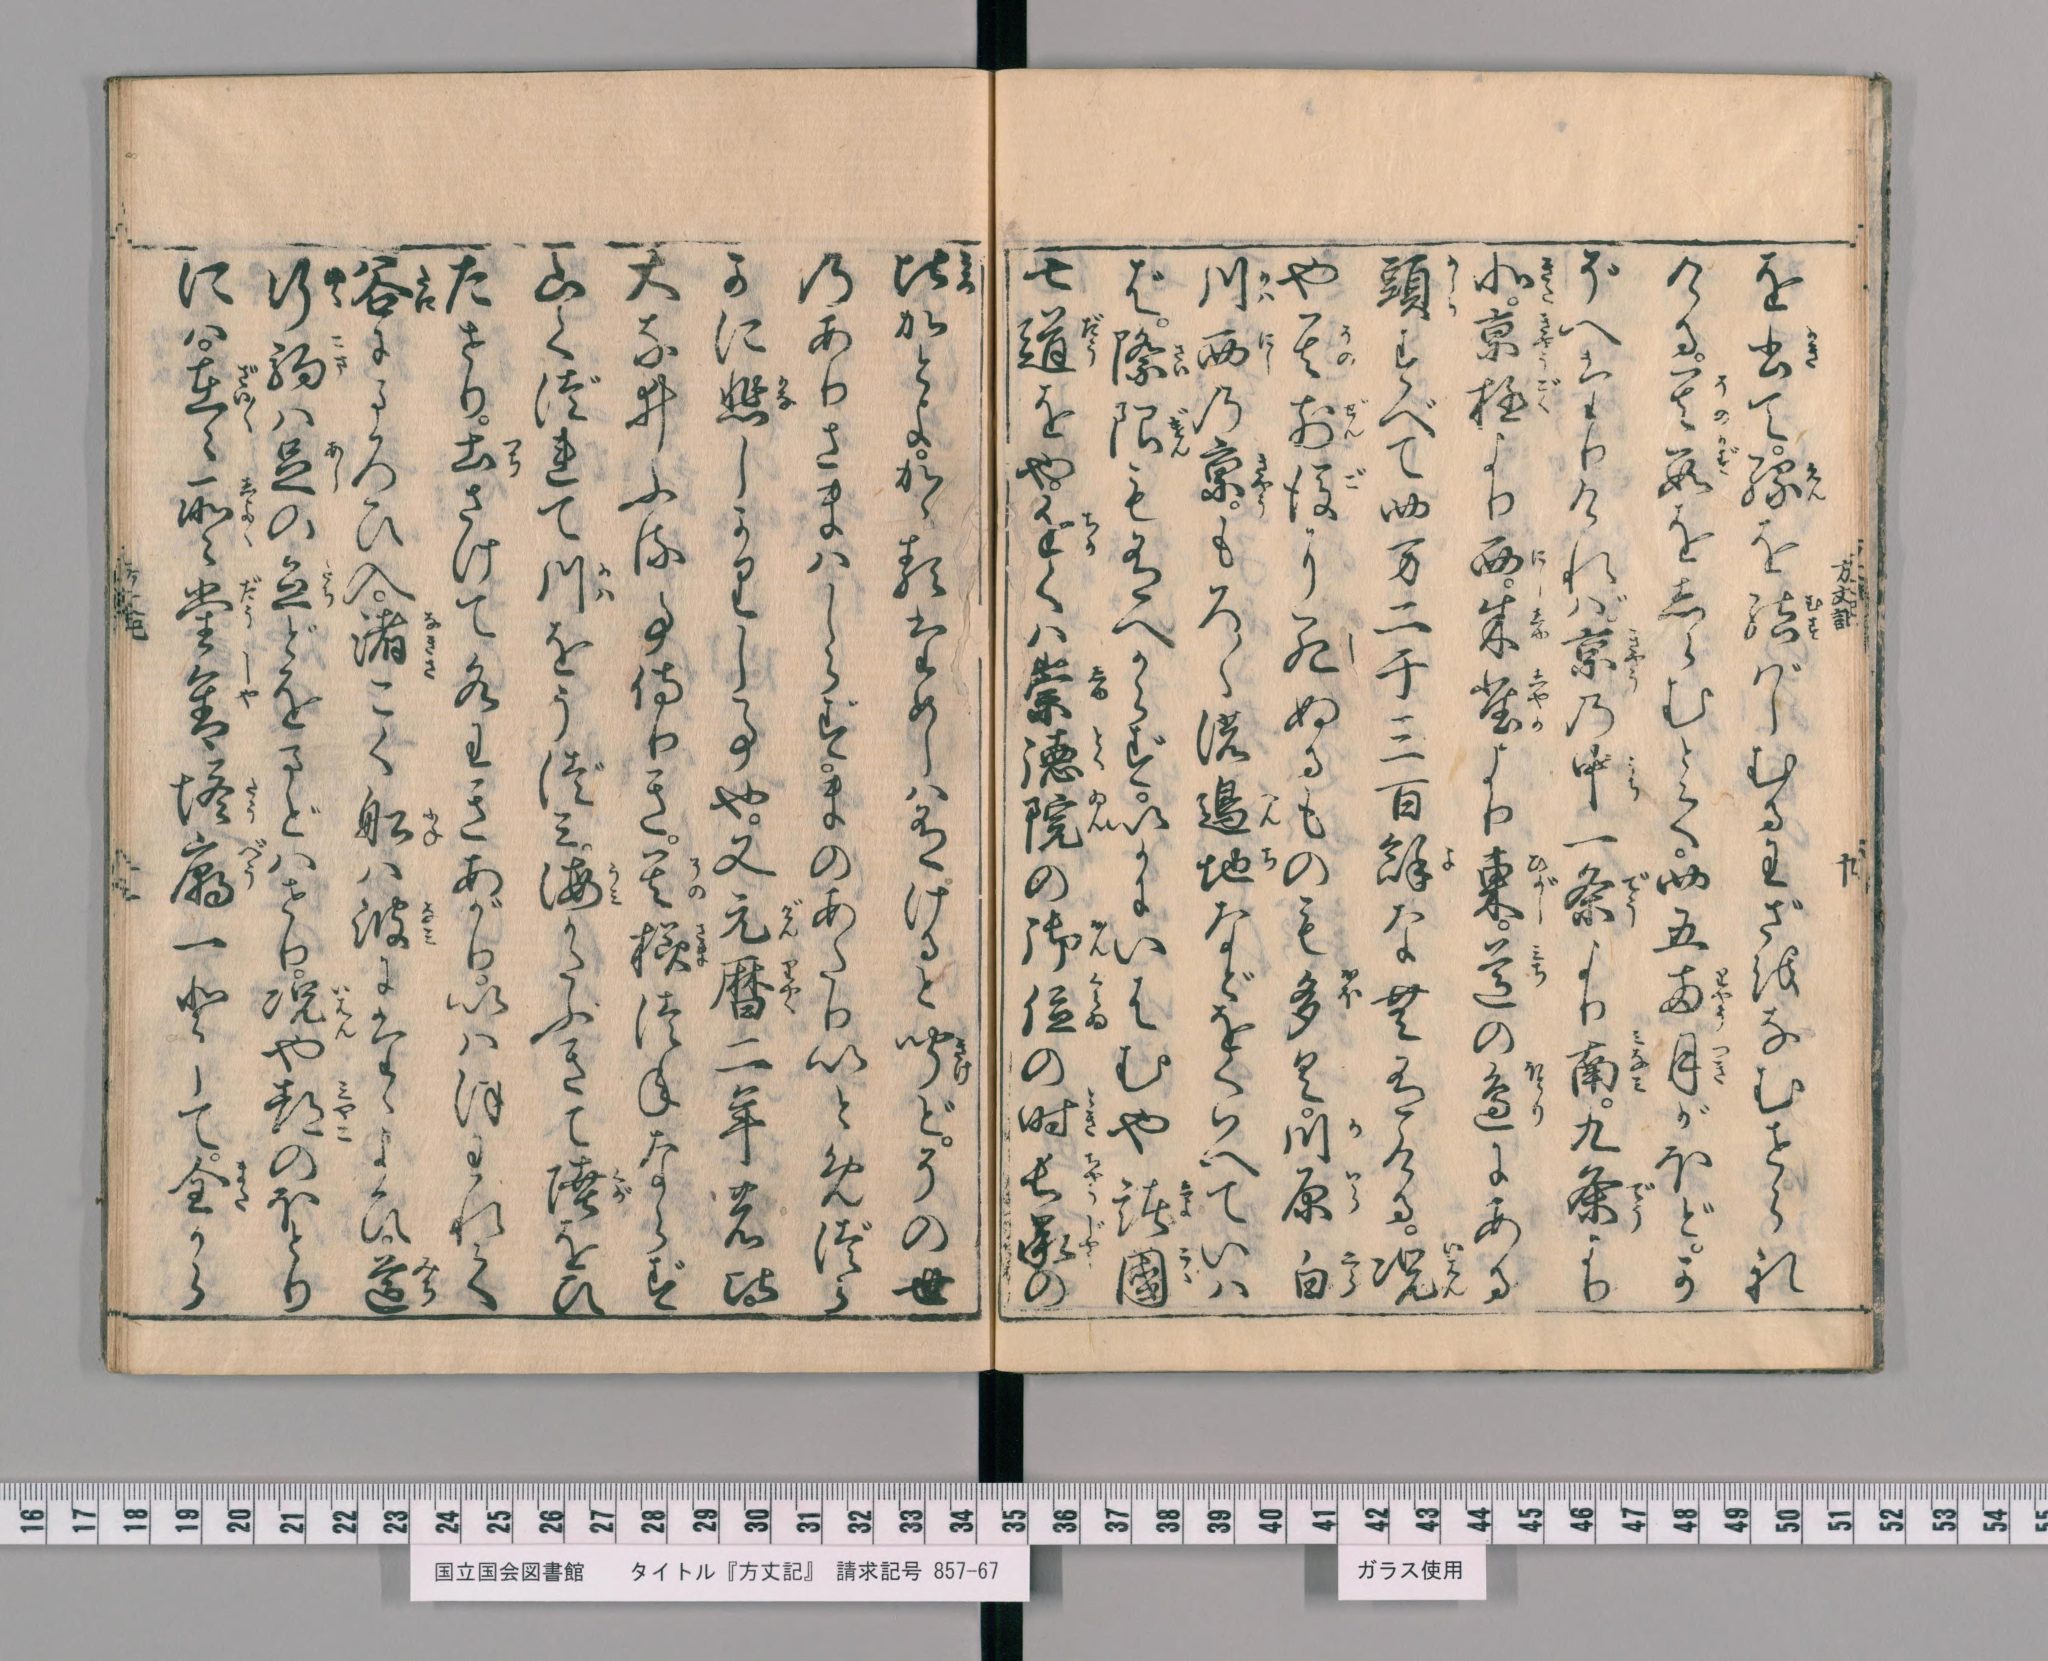 を書て。縁を結ばしむるわざをなむせられ
ける。其数をしらむとて。四五両月がほど。か
ぞへたりければ。京の中一条より南。九条より
北。京極より西。朱雀より東。道の邊にある
頭すべて四万二千三百餘なむ有ける。況
や其前後に死ぬるもの も多く。川原白
川西の京。もろ〳〵の邊地などをくはへていはゞ
際限も有べからず。いかにいはむや諸國
七道をや。ちかくは崇徳院の御位の時長承の
比かとよ。かゝるためしは有けると聞ど。その世
のありさまはしらず。まのあたりいとめづら
かに悲しかりし事や。又元暦二年の比
大なゐふる事侍りき。其様つねならず
山くづれて川をうづみ。海かたぶきて陸をひ
たせり。土さけて水わきあがり。いはほわれて
谷にまろび入。渚こぐ船は波にたゞよひ。道
行駒は足の立どをまどはせり。況や都のほとり
には。在々所々堂舎塔廟一として。全から
方丈記
国立国会図書館　タイトル『方丈記』　請求記号 857-67
ガラス使用
16 17 18 19 20 21 22 23 24 25 26 27 28 29 30 31 32 33 34 35 36 37 38 39 40 41 42 43 44 45 46 47 48 49 50 51 52 53 54 55